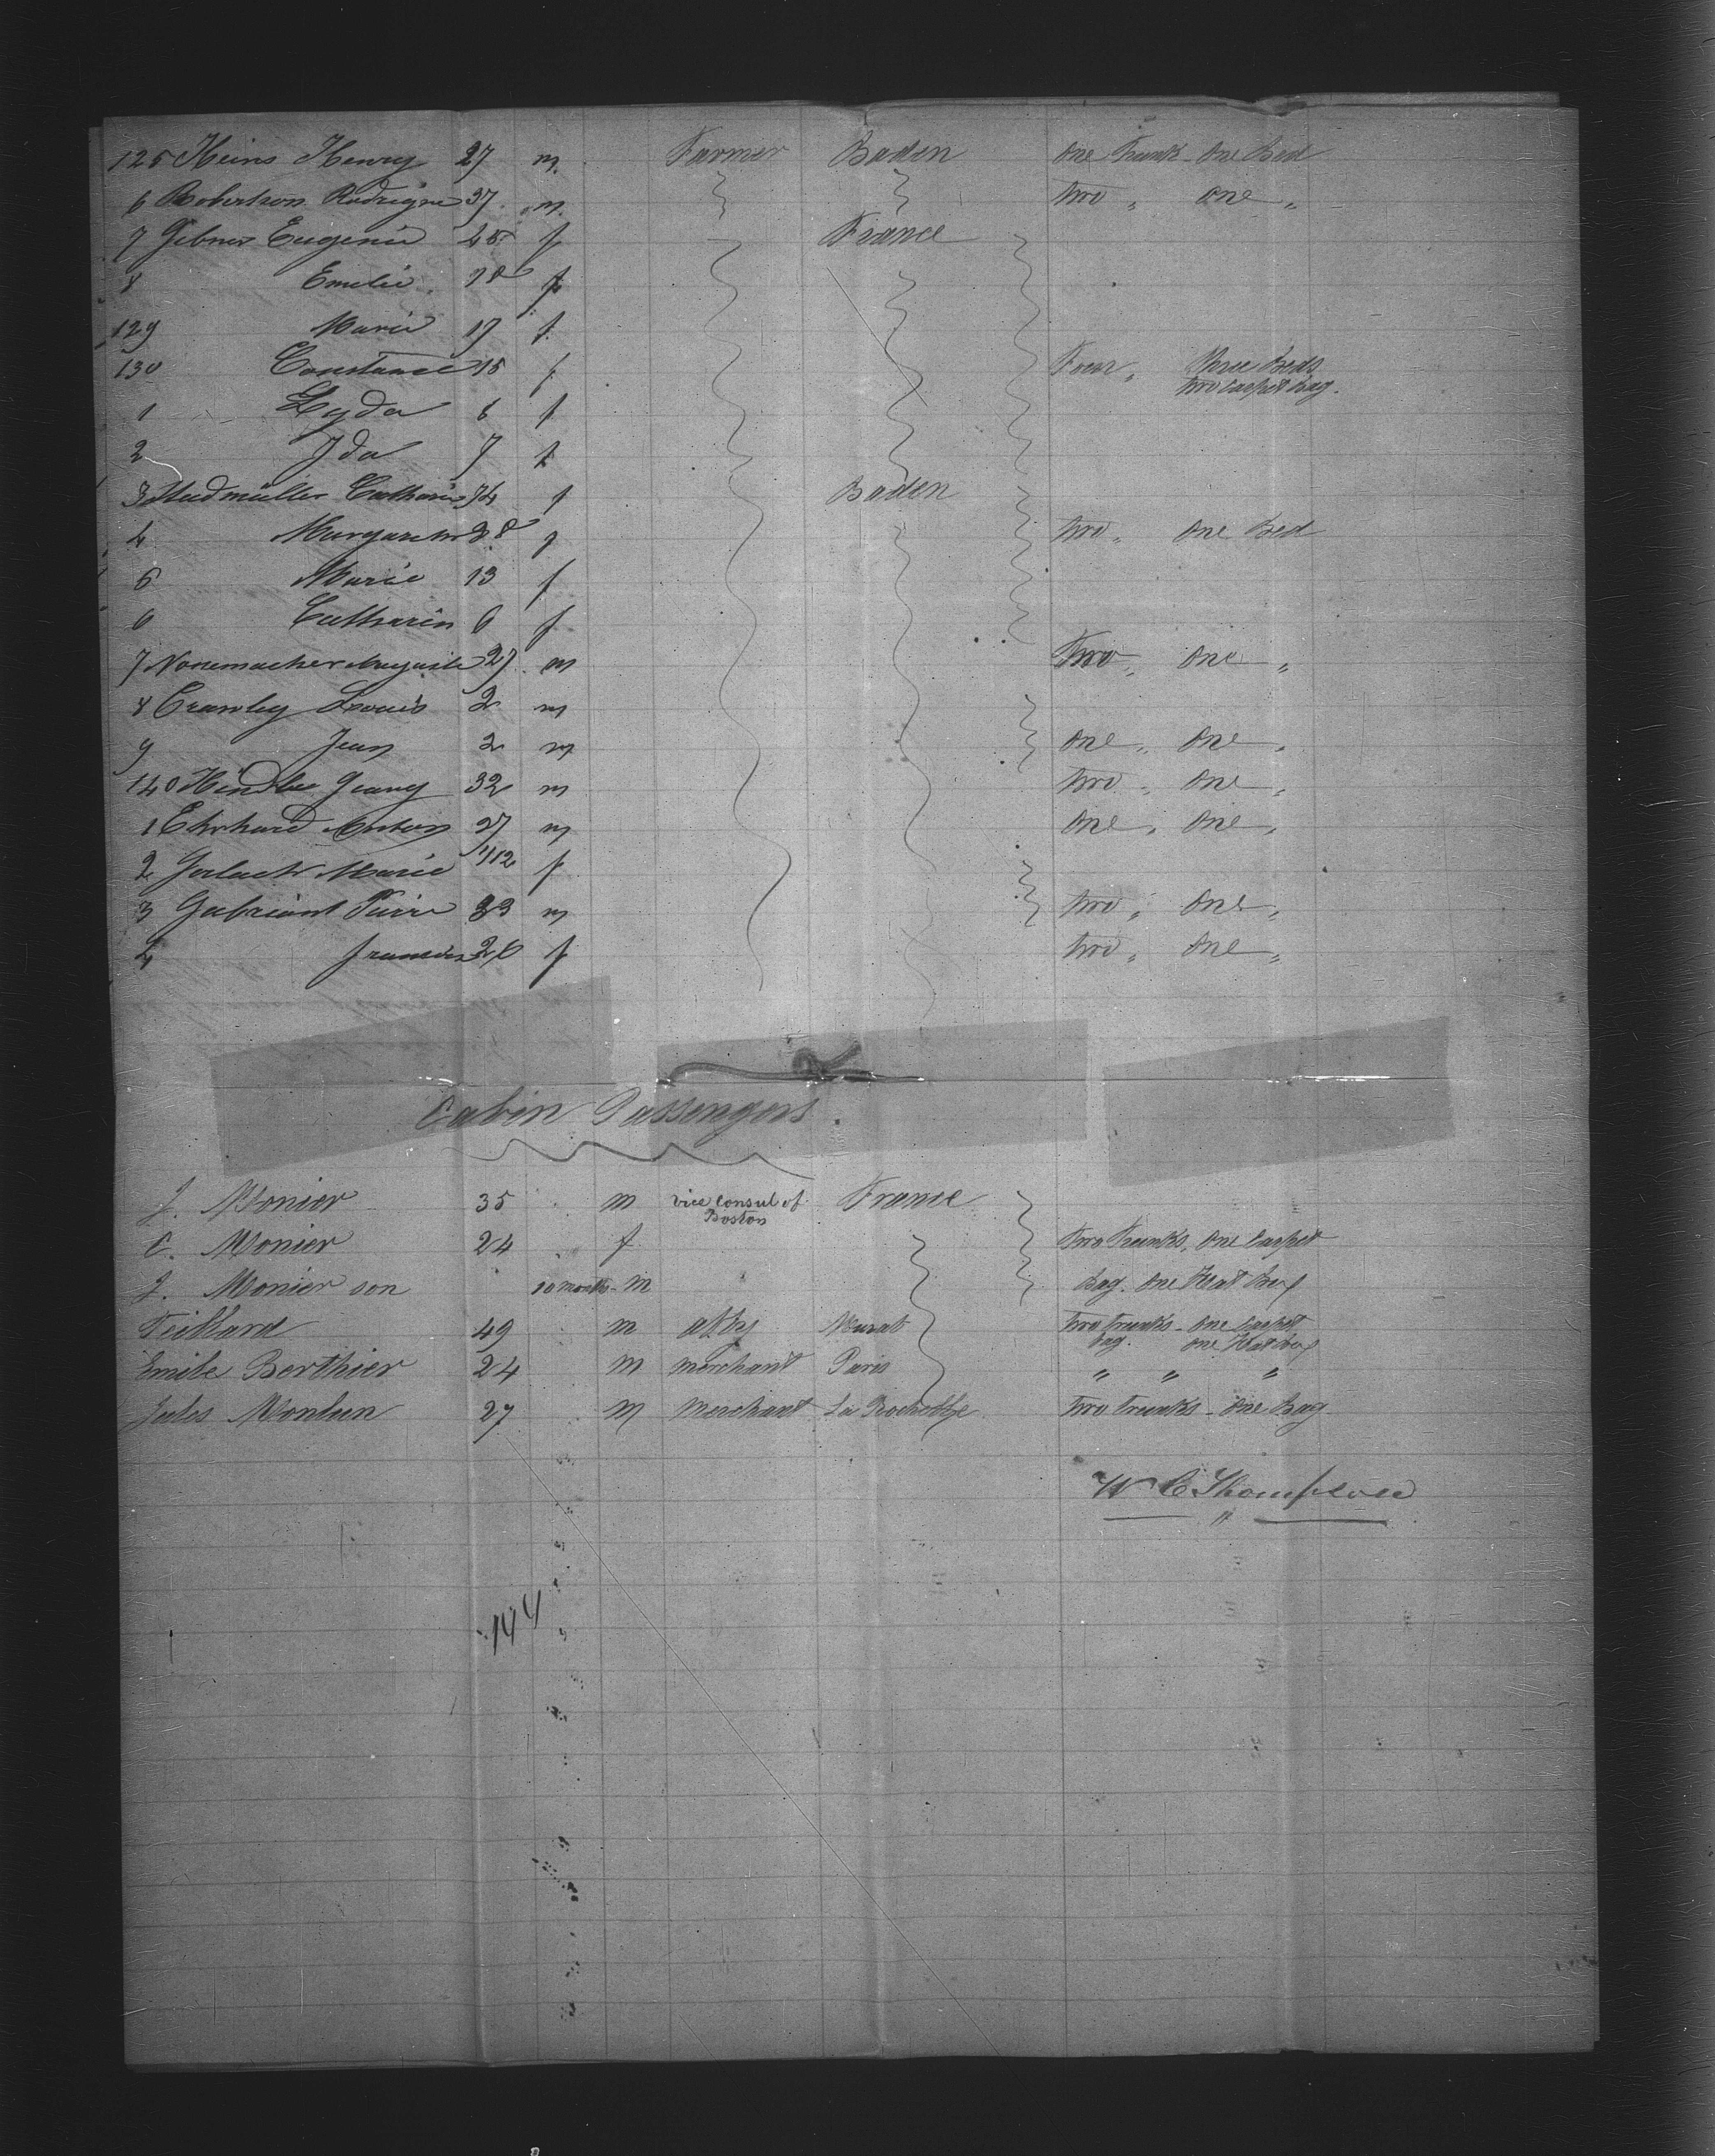 125 Heins Henry 27 m Farmer Baden One Trunk One Bed
6 Robertson Rodrigue 37 m two " One "
7 Gebner Eugenie 45 f France
8 Emelie 18 f
129 Marie 17 f
130 Constance 15 f Four " three Beds
two carpet bag.
1 Lyda 6 f
2 Ida 7 f
3 Catharin 74 f Baden
4 Margareth 38 f two " One Bed
5 Marie 13 f
6 Catharin 6 f
7 Nonemacher 27 m Two " One "
8 Louis 2 m
9 Jean 2 m One " One "
140 Georg 32 m two " One "
1 Ehrhard Anton 27 m One " One "
2 Marie 1/12 f
3 Pierre 33 m two " One "
4 26 f two " One "
Cabin Passengers.
J. Monier 35 m vice Consul of France
Boston
C. Monier 24 f Two Trunks, One Carpet
J. Monier son 10 months m Bag. One Hat box
Teilhard 49 m abby Murat two trunks - One Carpet
bag. One Hat box
Emile Berthier 24 m merchant Paris " " "
Jules Montun 27 m Merchant La Rochelle two trunks - One Bag
W C Thompson
144